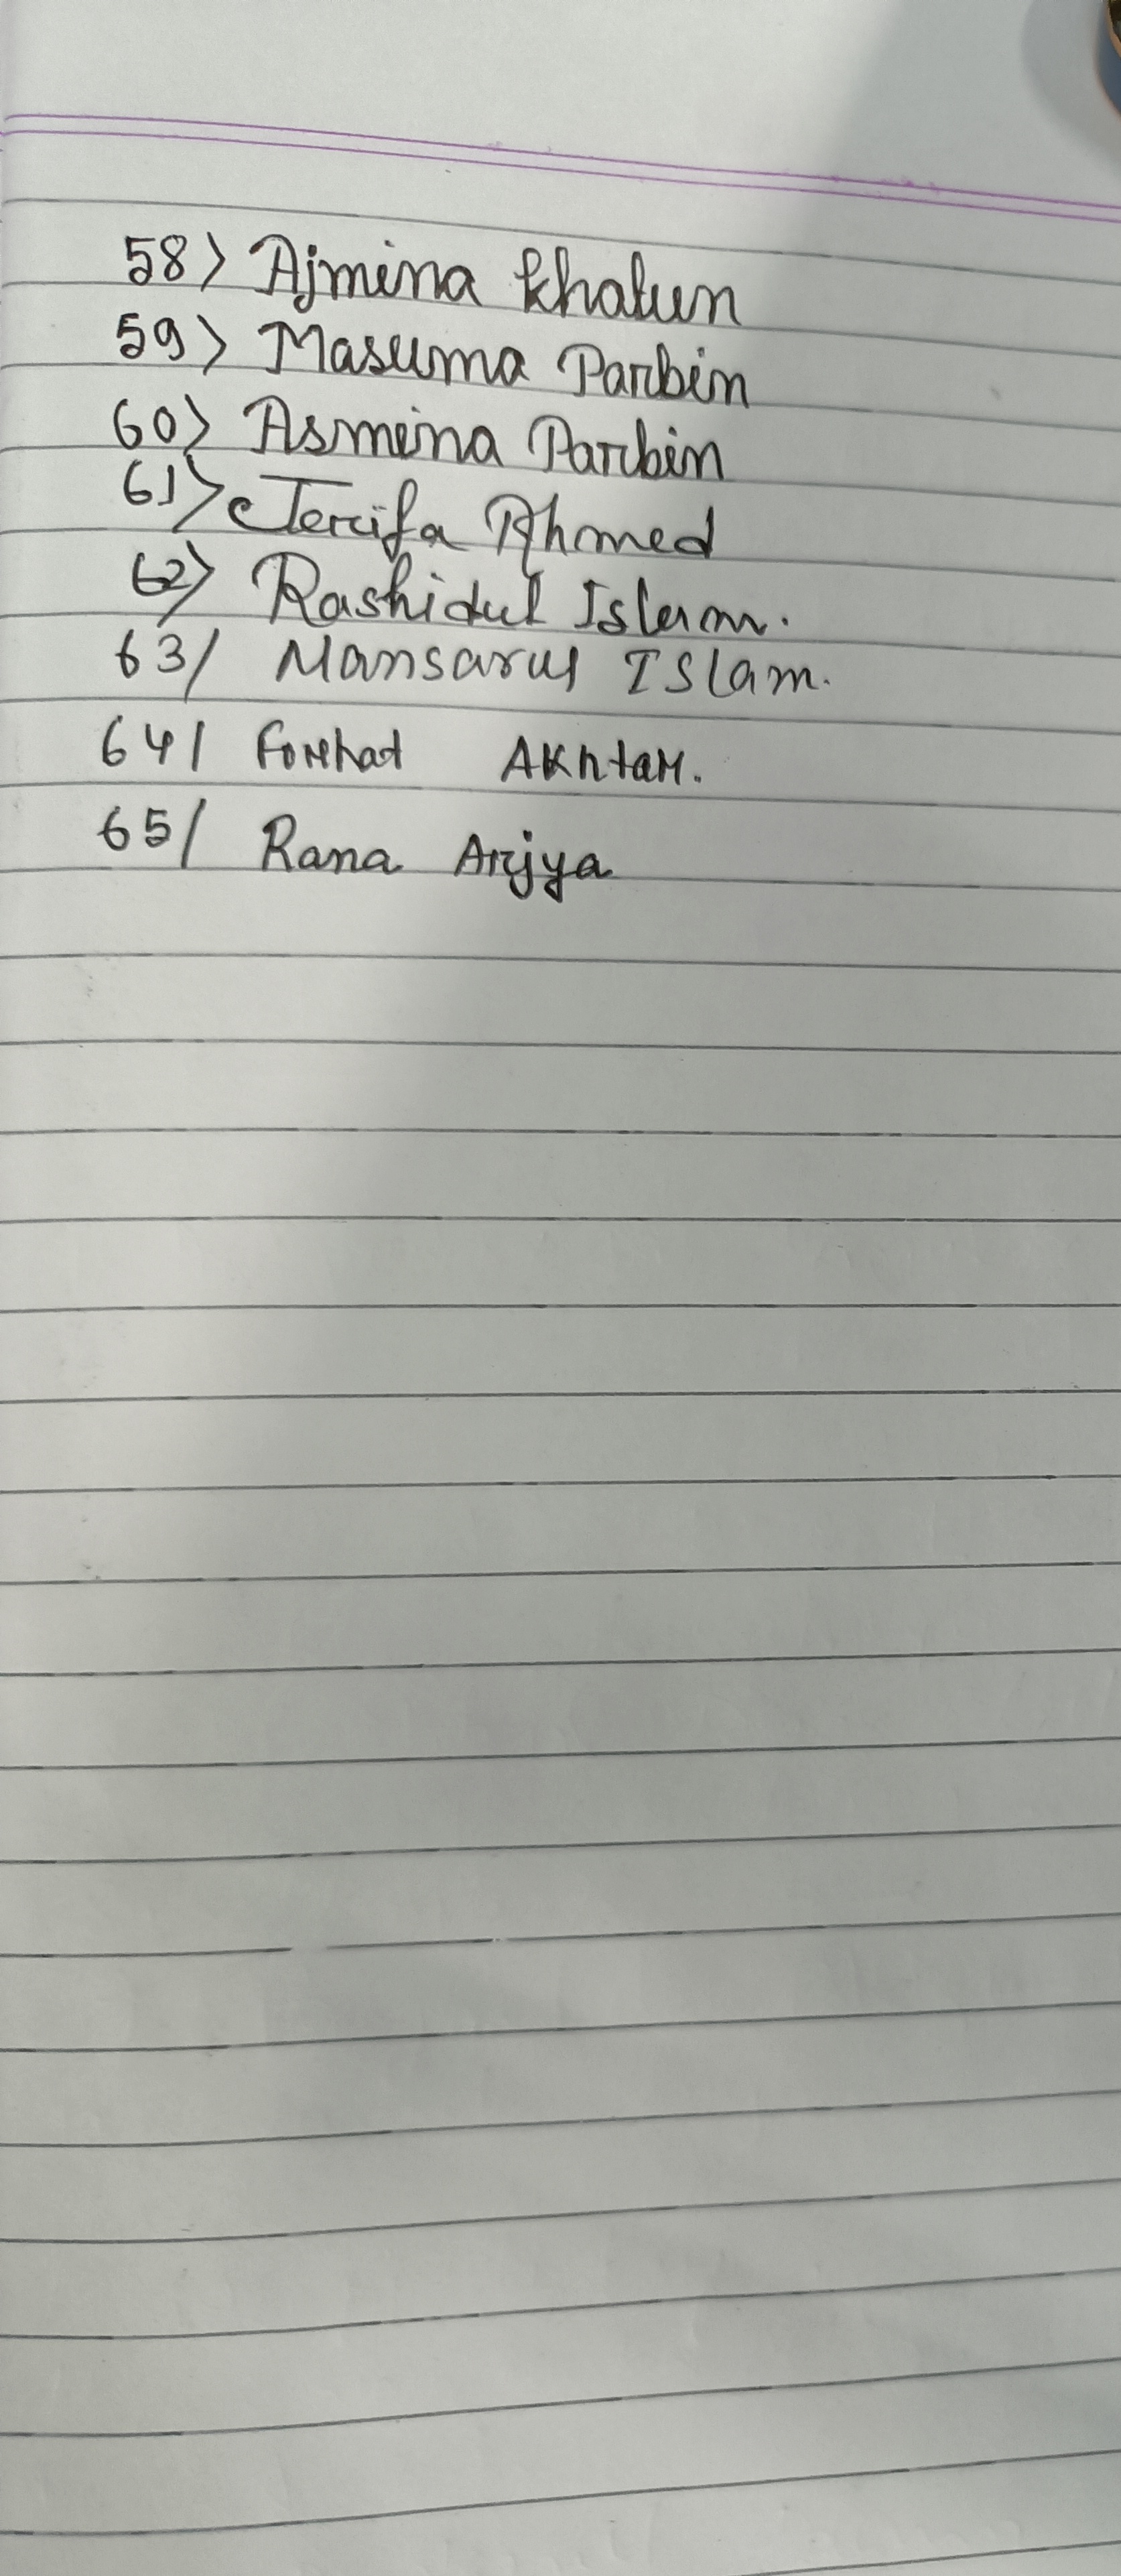 58> Ajmina Khatun
59> Masuma Parbin
60> Asmina Parbin
61> Ahmed
62> Rashidul Islam.
63/ Mansarul ISlam.
64/ Forhat AKhtar.
65/ Rana Arjya